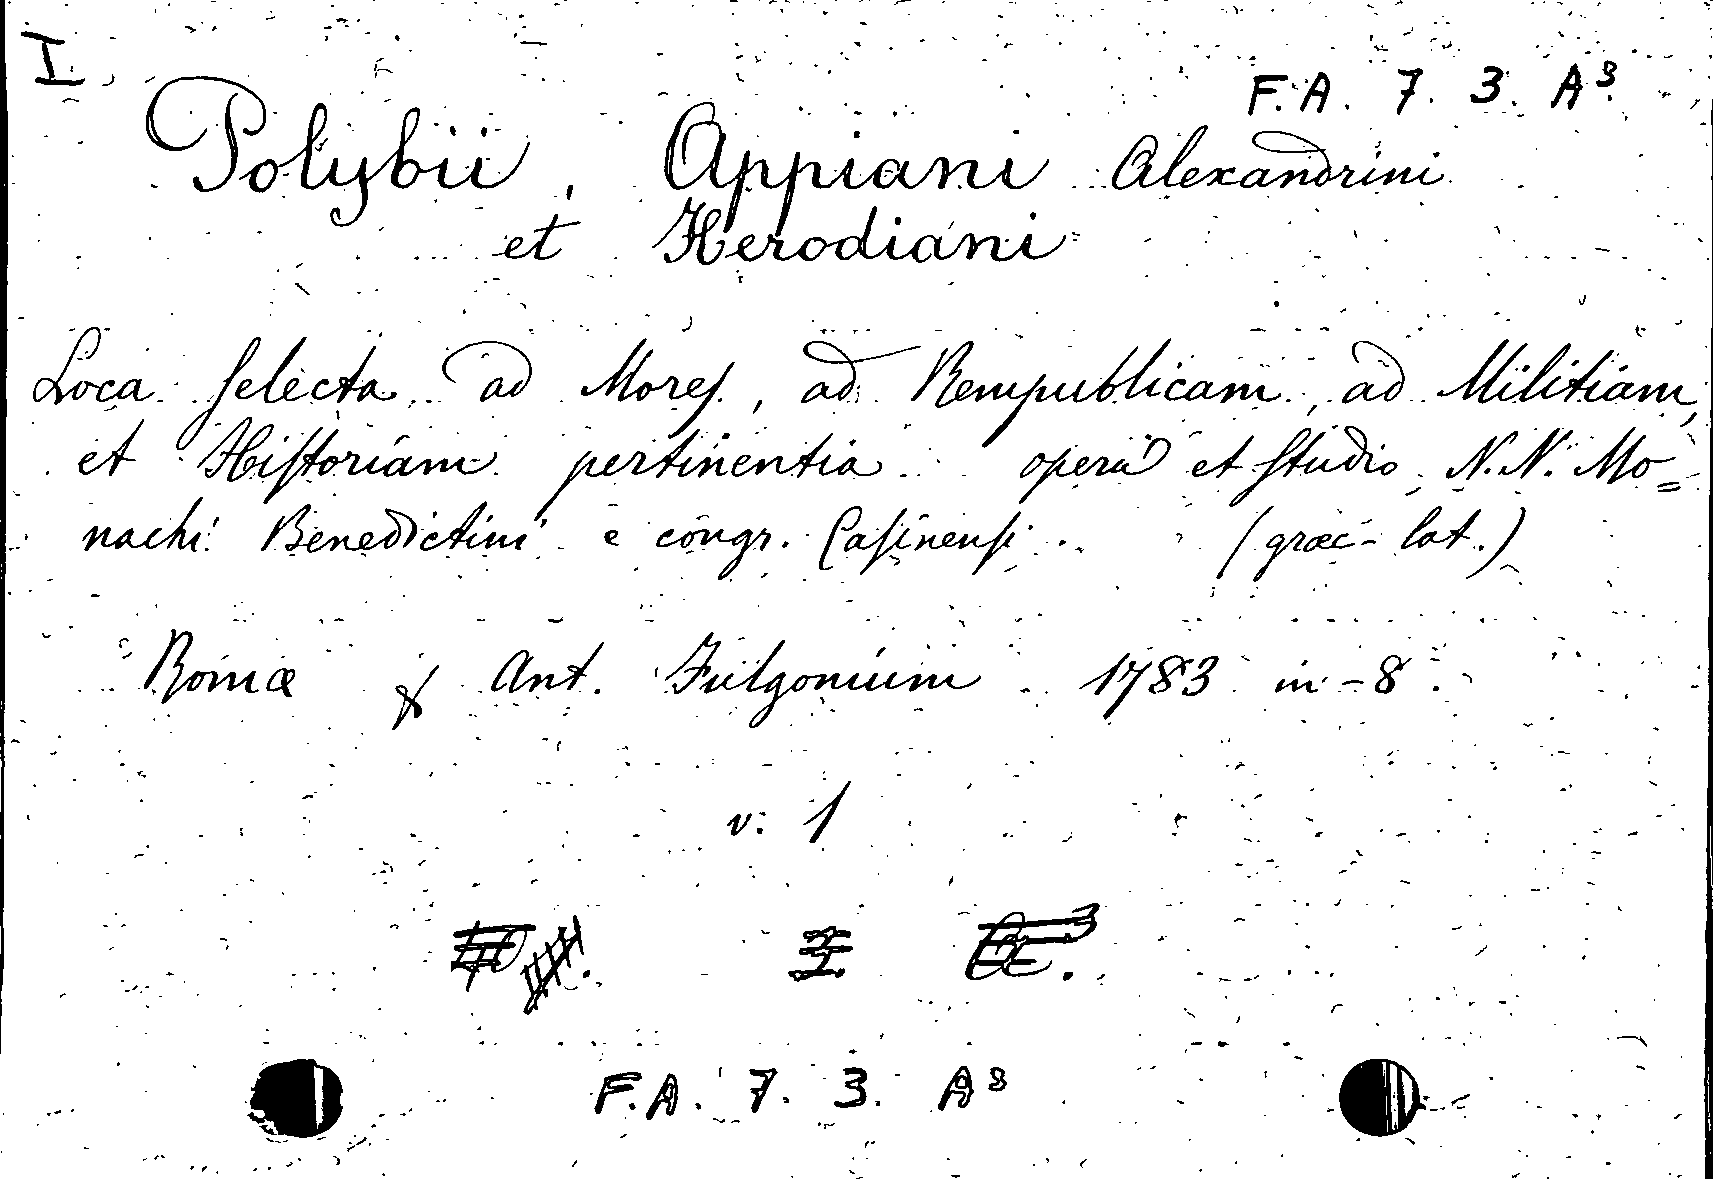 I
F.A. 7. 3. A⁸.
Polybii, Appiani Alexandrini
et Herodiani
Loca selecta ad Mores, ad Rempublicam, ad Militiam,
et Historiam pertinentia operâ et studio N.N. Mo=
nachi Benedictini e congr. Casinensi. (græc-lat.)
Romæ Ant. Fulgonium 1783 in-8.
v. 1
F.A. 7. 3. A⁸